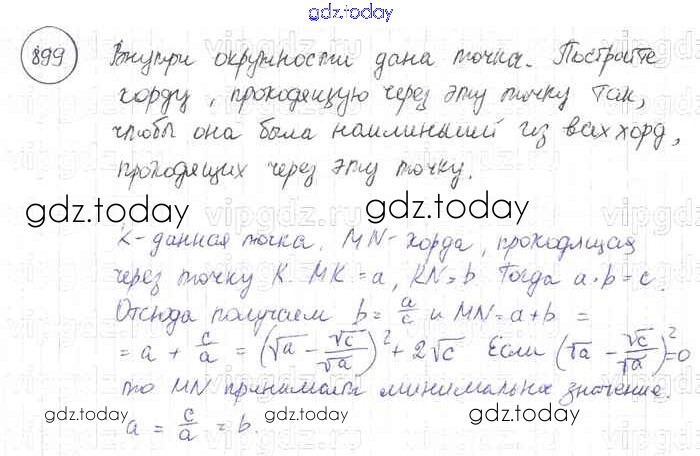 gdz.today
899 Внутри окружности дана точка. Постройте
хорду, проходящую через эту точку так,
чтобы она была наименьшей из всех хорд,
проходящих через эту точку.
gdz.today gdz.today
K-данная точка. MN-хорда, проходящая
через точку K. MK=a, KN=b. Тогда a·b=c.
Отсюда получаем b = a/c и MN=a+b =
= a + c/a = (√a - √c/√a)² + 2√c Если (√a - √c/√a)²=0
то MN принимает минимальное значение.
gdz.today gdz.today
a = c/a = b.
gdz.today